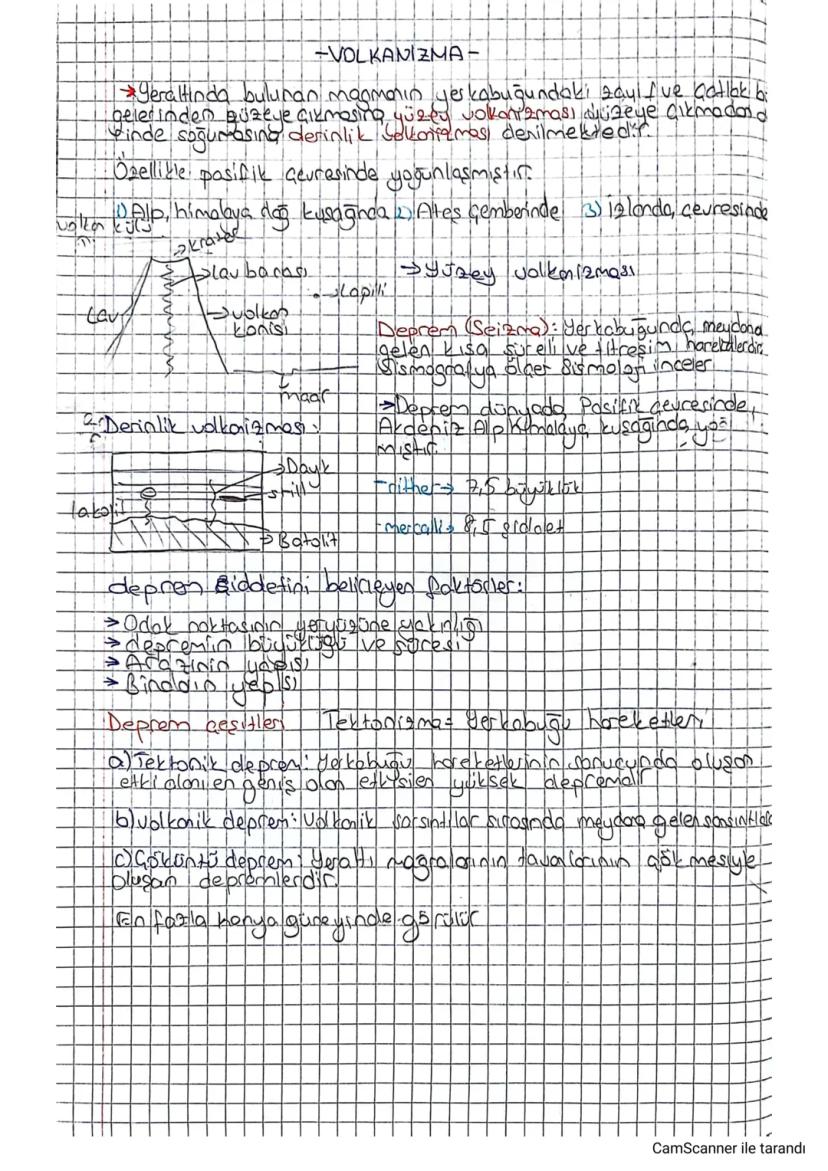 -VOLKANİZMA-
→Yeraltında bulunan magmanın yerkabuğundaki zayıf ve çatlak b
gelerinden yüzeye çıkmasına yüzey volkanizması yüzeye çıkmadan d
rinde soğumasına derinlik volkanizması denilmektedir.
Özellikle pasifik çevresinde yoğunlaşmıştır.
1) Alp, himalaya dağ kuşağında 2) Ateş çemberinde 3) izlanda, çevresinde
volkan külü
krater
lav bacası
→yüzey volkanizması
lapilli
Lav
volkan
konisi
Deprem (Seizma): Yerkabuğunda, meydana
gelen kısa süreli ve titreşim hareketlerdir.
Sismografya ölçer Sismolog inceler
maar
→Deprem dünyada Pasifik çevresinde,
Akdeniz Alp Himalaya, kuşağında yoğ
mıştır.
2- Derinlik volkanizması:
→Dayk
sill
-rither→ 7,5 büyüklük
lakolit
-mercalli→ 8,5 şiddet
→Batolit
deprem şiddetini belirleyen faktörler:
→ Odak noktasının yeryüzüne yakınlığı
→ depremin büyüklüğü ve süresi
→ Arazinin yapısı
→ Binaların yapısı
Deprem çeşitleri Tektonizma= Yerkabuğu hareketleri
a) Tektonik deprem: Yerkabuğu hareketlerinin sonucunda oluşan
etki alanı en geniş olan etkisi en yüksek depremdir
b) volkanik deprem: Volkanik sarsıntılar sırasında meydana gelen sarsıntılar
c) Çöküntü deprem: Yeraltı mağralarının tavanlarının çökmesiyle
oluşan depremlerdir.
En fazla konya güneyinde görülür
CamScanner ile tarandı